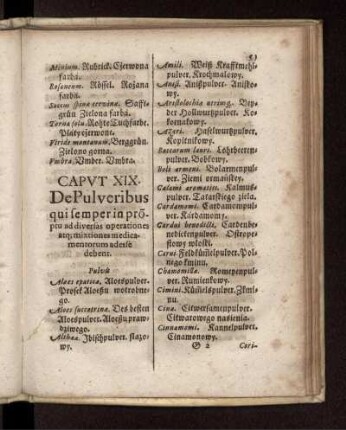 53
Minium. Rubrick. Czerwona
farba.
Rosaneum. Rössel. Rożana
farba.
Succus spinæ cervinæ. Safft-
grün Zielona farba.
Torna solu. Rohte Tuchfarbe.
Płaty czerwone.
Viride montanum. Berggrün.
Zielono gorna.
Vmbra. Vmber. Vmbra.
CAPVT XIX.
De Pulveribus
qui semper in prō-
ptu ad diversas operationes
atq; mixtiones medica-
mentorum adesse
debent.
Pulvis
Aloes epatica. Aloespulver.
Proszek Aloesu wotrobne-
go.
Aloes succotrina. Des besten
Aloespulver. Aloesu praw-
dziwego.
Althææ. Ibischpulver. slazo-
wy.
Amili. Weiß Krafftmehl-
pulver. Krochmalowy.
Anisi. Anißpulver. Aniżo-
wy.
Aristolochia utriusq. Bey-
der Hollwurtzpulver. Ko-
kornakowy.
Azari. Haselwurtzpulver.
Kopitnikowy.
Baccarum lauri. Lohrbeeren-
pulver. Bobkowy.
Boli armeni. Bolarmenpul-
ver. Ziemi ormańskey.
Calami aromatici. Kalmus-
pulver. Tatarskiego ziela.
Cardamomi. Cardamompul-
ver. Kardamomy.
Cardui benedicti. Cardenbe-
nedictenpulver. Ostrope-
stowy włoski.
Carui. Feldkümelpulver. Pol-
nego kminu.
Chamomilla. Romeyenpul-
ver. Rumienkowy.
Cimini. Kümelspulver. Kmi-
nu.
Cina. Citwersamenpulver.
Citwarowego nasienia.
Cinnamomi. Kannelpulver.
Cinamonowy.
G 2 Cori-